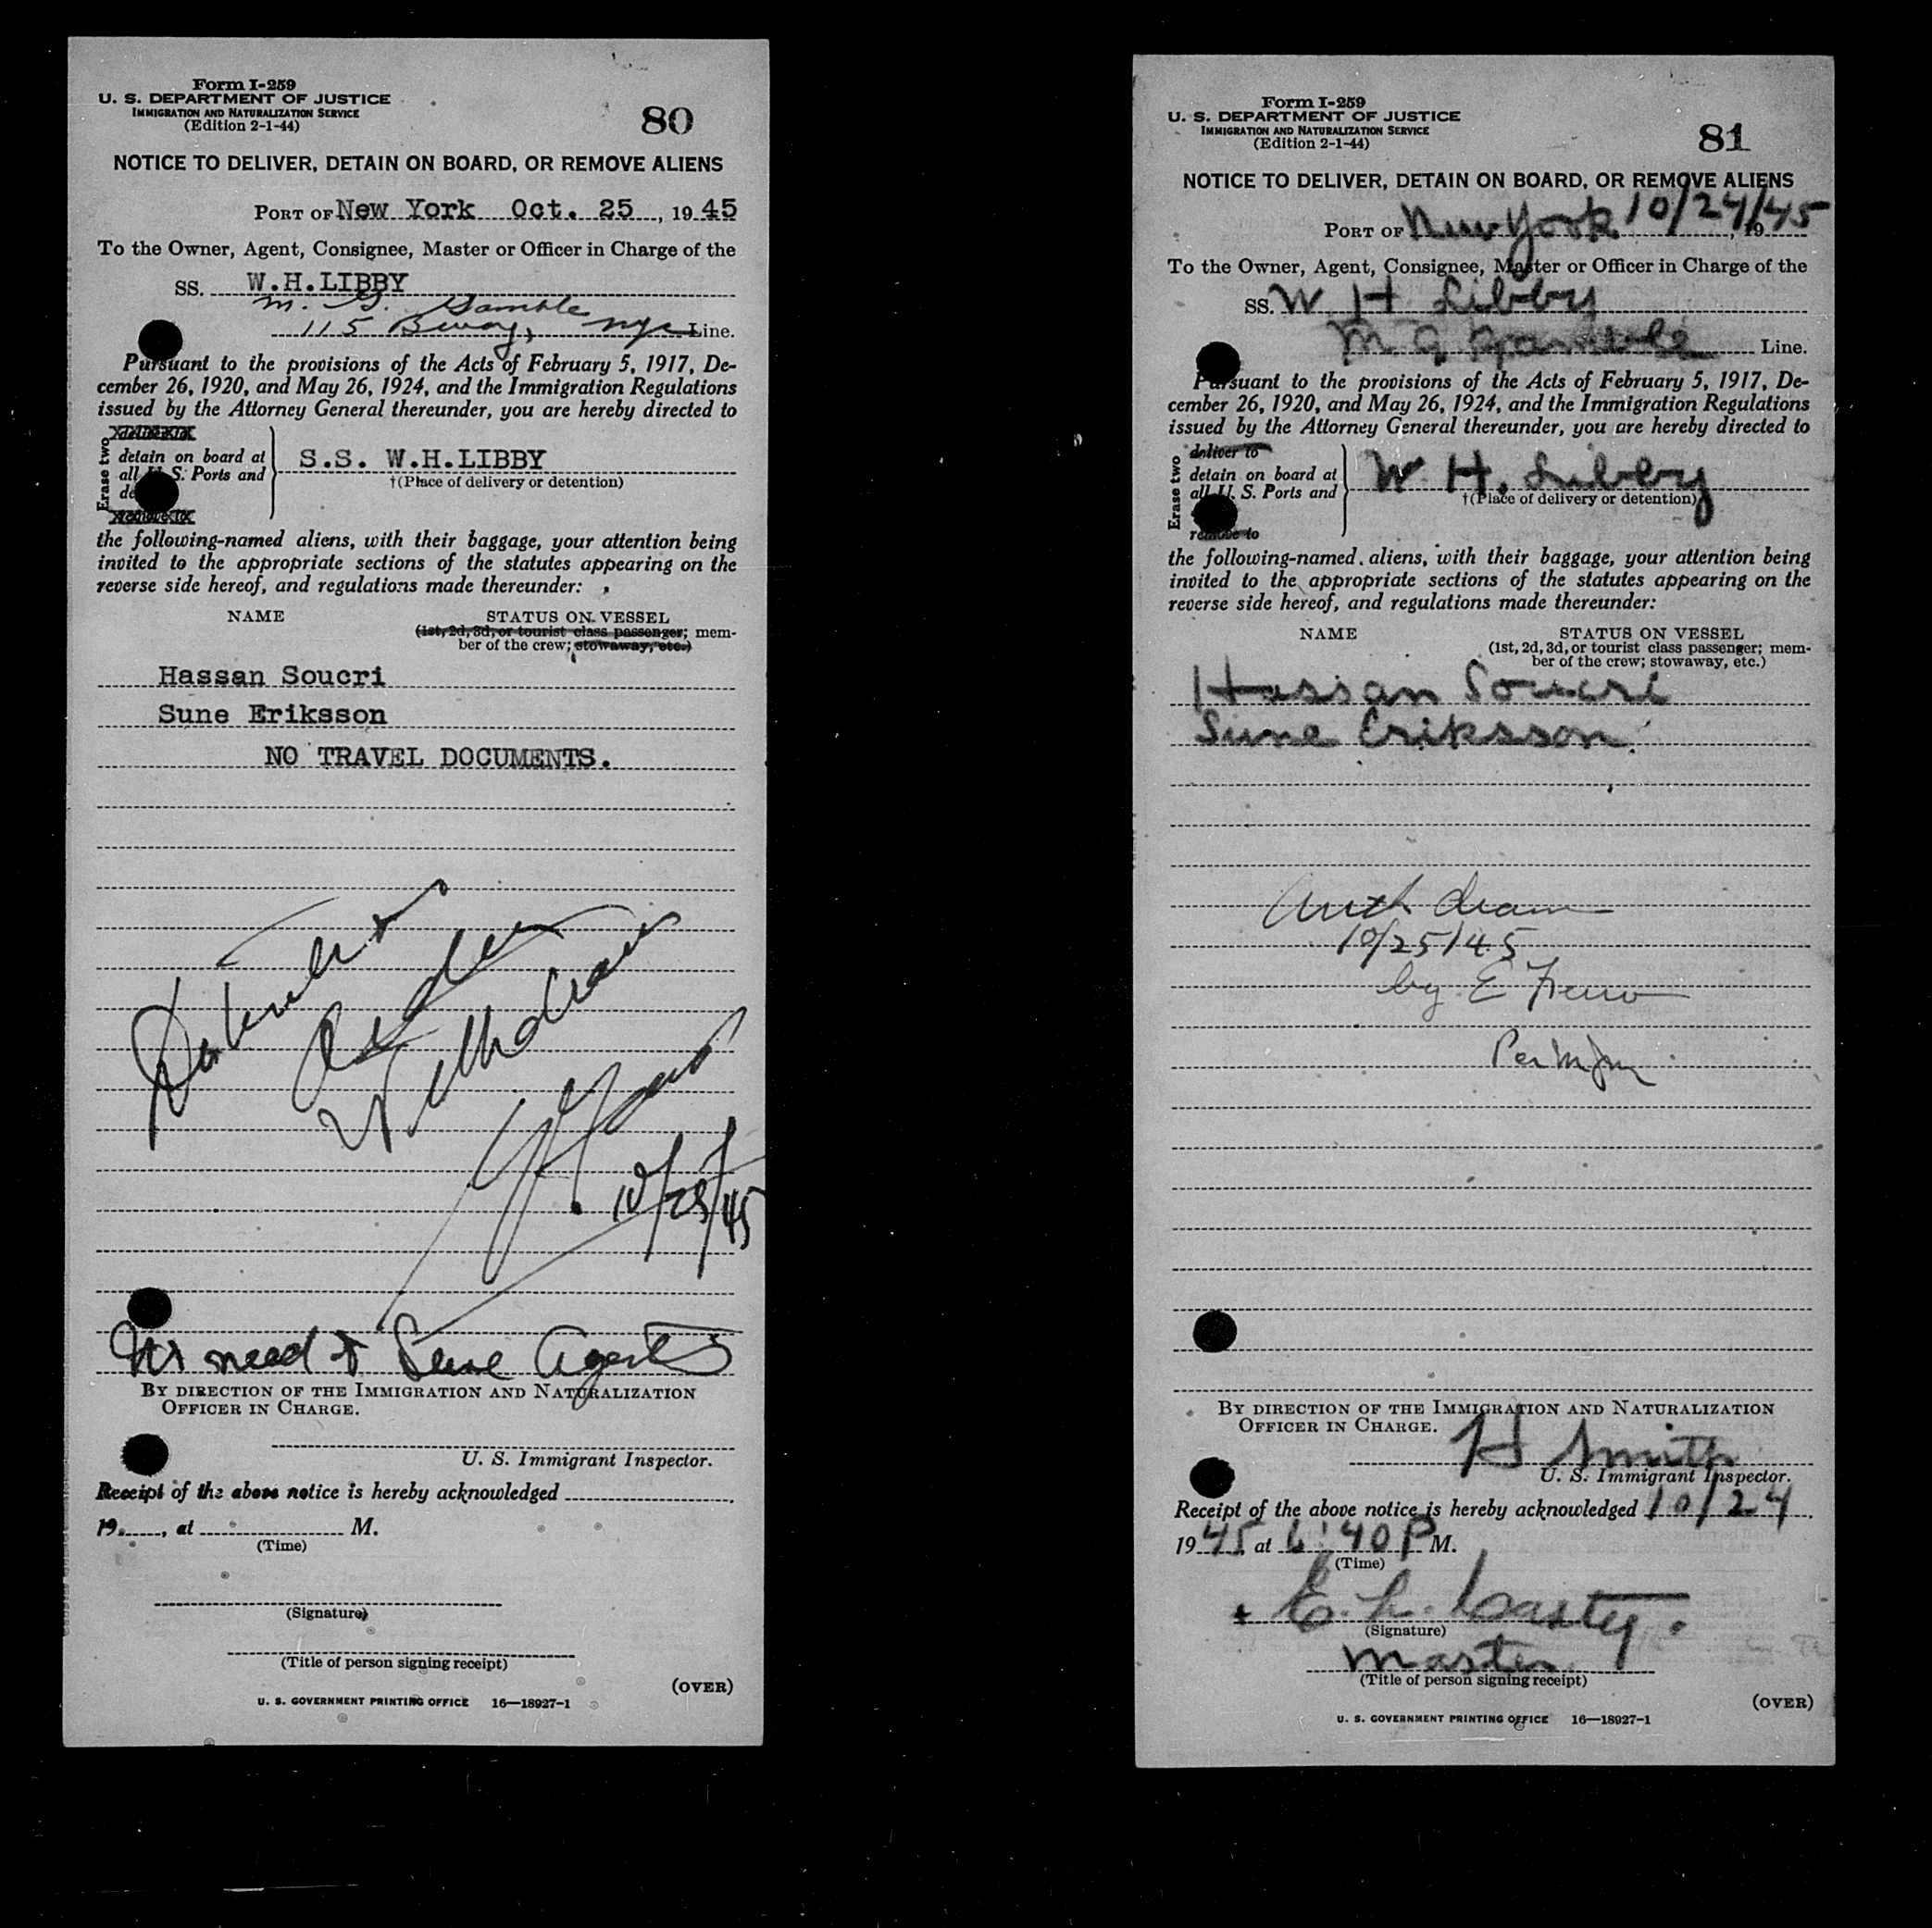 Form I-259
U. S. DEPARTMENT OF JUSTICE
IMMIGRATION AND NATURALIZATION SERVICE
(Edition 2-1-44)
80
NOTICE TO DELIVER, DETAIN ON BOARD, OR REMOVE ALIENS
PORT OF New York Oct. 25, 1945
To the Owner, Agent, Consignee, Master or Officer in Charge of the
SS. W.H.LIBBY
M. G. Gamble
115 Bway, nyc Line.
Pursuant to the provisions of the Acts of February 5, 1917, De-
cember 26, 1920, and May 26, 1924, and the Immigration Regulations
issued by the Attorney General thereunder, you are hereby directed to
Erase two
detain on board at
all U. S. Ports and
S.S. W.H.LIBBY
†(Place of delivery or detention)
remove to
the following-named aliens, with their baggage, your attention being
invited to the appropriate sections of the statutes appearing on the
reverse side hereof, and regulations made thereunder:
NAME STATUS ON VESSEL
(1st, 2d, 3d, or tourist class passenger; mem-
ber of the crew; stowaway, etc.)
Hassan Soucri
Sune Eriksson
NO TRAVEL DOCUMENTS.
10/25/45
need to Agents
BY DIRECTION OF THE IMMIGRATION AND NATURALIZATION
OFFICER IN CHARGE.
U. S. Immigrant Inspector.
Receipt of the above notice is hereby acknowledged
19 , at M.
(Time)
(Signature)
(Title of person signing receipt)
(OVER)
U. S. GOVERNMENT PRINTING OFFICE 16—18927-1
Form I-259
U. S. DEPARTMENT OF JUSTICE
IMMIGRATION AND NATURALIZATION SERVICE
(Edition 2-1-44)
81
NOTICE TO DELIVER, DETAIN ON BOARD, OR REMOVE ALIENS
PORT OF New York 10/24/45, 19
To the Owner, Agent, Consignee, Master or Officer in Charge of the
SS. W H Libby
M. G. Gamble Line.
Pursuant to the provisions of the Acts of February 5, 1917, De-
cember 26, 1920, and May 26, 1924, and the Immigration Regulations
issued by the Attorney General thereunder, you are hereby directed to
Erase two
deliver to
detain on board at
all U. S. Ports and
W. H. Libby
†(Place of delivery or detention)
remove to
the following-named aliens, with their baggage, your attention being
invited to the appropriate sections of the statutes appearing on the
reverse side hereof, and regulations made thereunder:
NAME STATUS ON VESSEL
(1st, 2d, 3d, or tourist class passenger; mem-
ber of the crew; stowaway, etc.)
Hassan Soucri
Sune Eriksson
10/25/45
by E
Per
BY DIRECTION OF THE IMMIGRATION AND NATURALIZATION
OFFICER IN CHARGE.
H Smith
U. S. Immigrant Inspector.
Receipt of the above notice is hereby acknowledged 10/24,
1945 at 6:40 P M.
(Time)
E. L.
(Signature)
Master
(Title of person signing receipt)
(OVER)
U. S. GOVERNMENT PRINTING OFFICE 16—18927-1